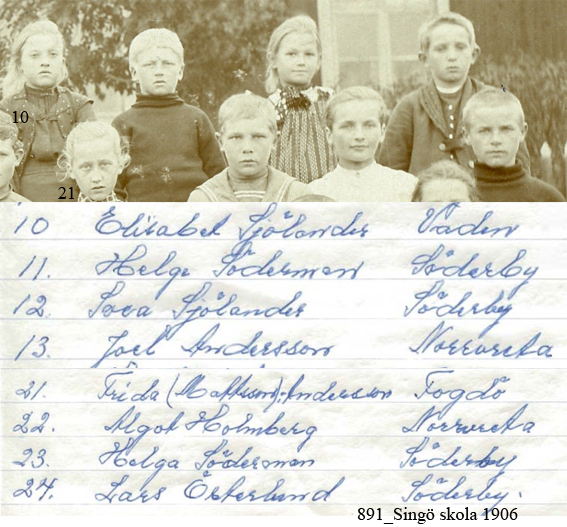 10
21
10 Elisabet Sjölander Vaden
11. Helge Söderman Söderby
12. Svea Sjölander Söderby
13. Joel Andersson Norrvreta
21. Frida (Mattsson), Andersson Fogdö
22. Algot Holmberg Norrvreta
23. Helga Söderman Söderby
24. Lars Österlund Söderby.
891_Singö skola 1906